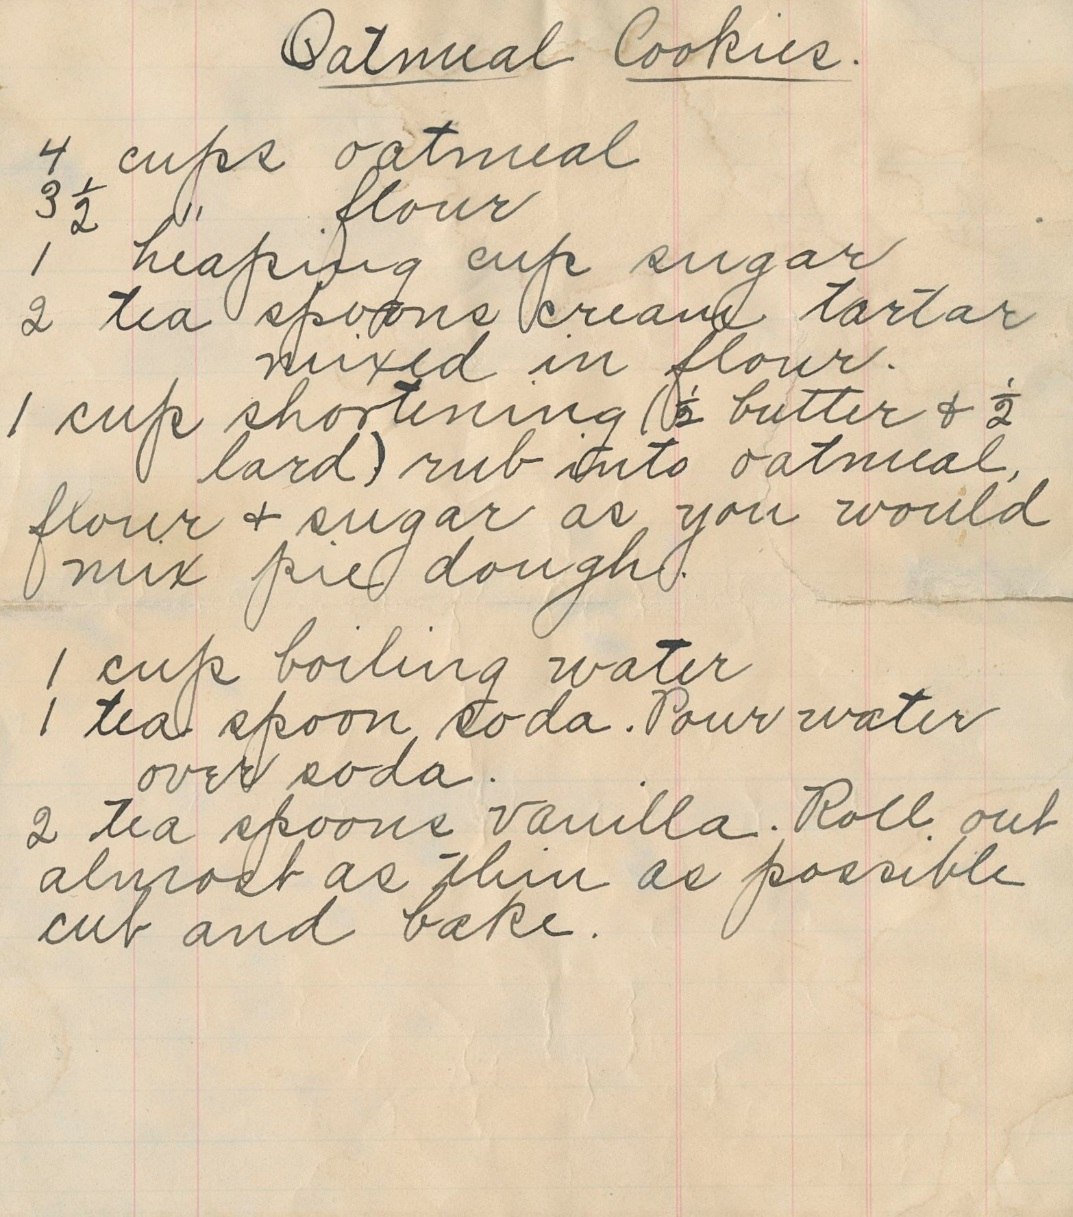 Oatmeal Cookies.
4 cups oatmeal
3 1/2 " flour
1 heaping cup sugar
2 tea spoons cream tartar
mixed in flour.
1 cup shortening (1/2 butter & 1/2
lard) rub into oatmeal,
flour & sugar as you would
mix pie dough.
1 cup boiling water
1 tea spoon soda. Pour water
over soda.
2 tea spoons vanilla. Roll out
almost as thin as possible
cut and bake.